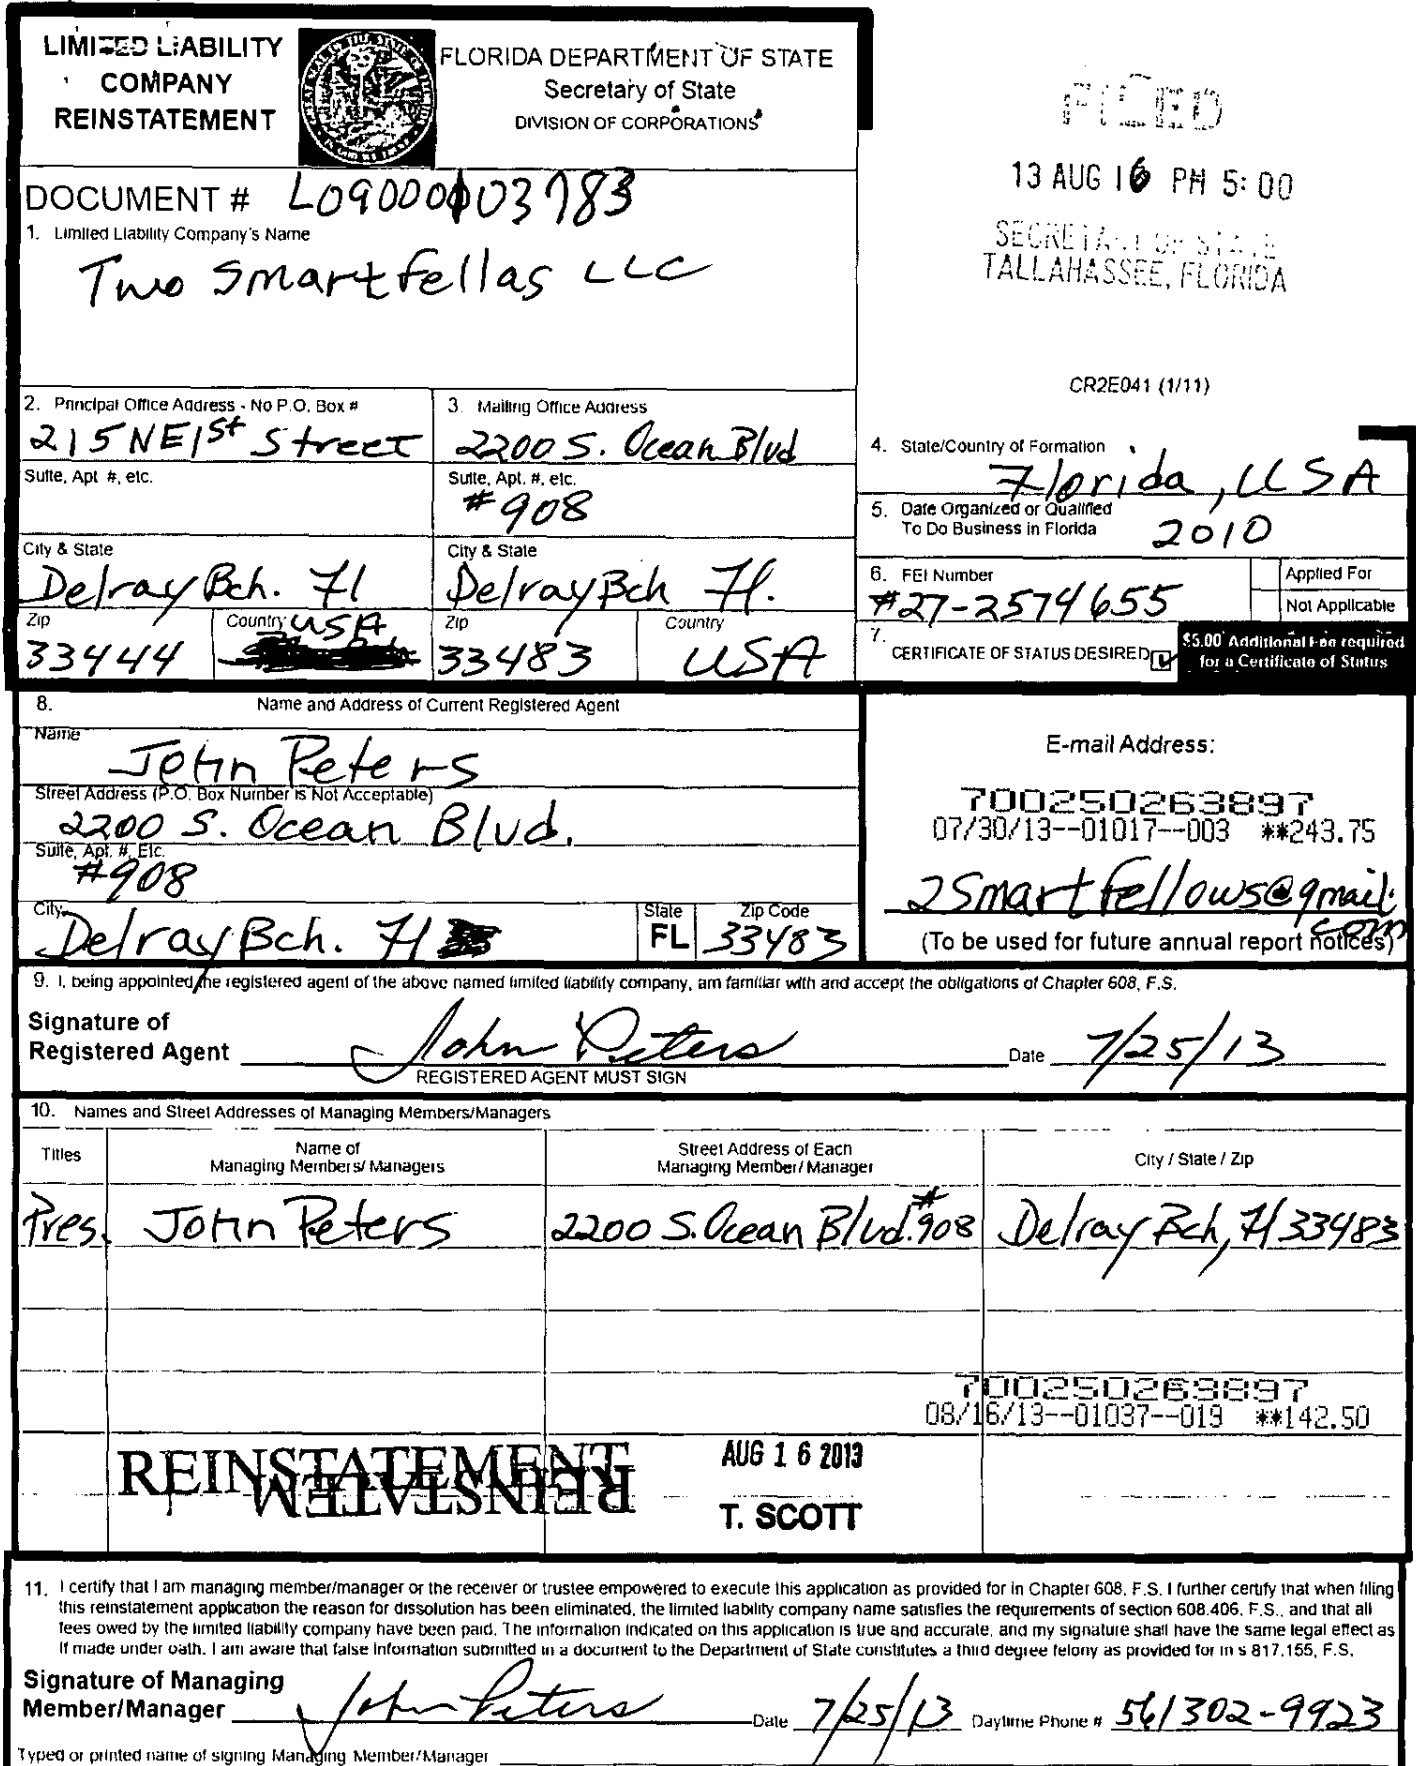 LIMITED LIABILITY
COMPANY
REINSTATEMENT
FLORIDA DEPARTMENT OF STATE
Secretary of State
DIVISION OF CORPORATIONS
FILED
13 AUG 16 PM 5:00
SECRETARY OF STATE
TALLAHASSEE, FLORIDA
DOCUMENT # L09000103783
1. Limited Liability Company's Name
Two Smartfellas LLC
CR2E041 (1/11)
2. Principal Office Address - No P.O. Box #
215 NE 1st Street
3. Mailing Office Address
2200 S. Ocean Blvd
Suite, Apt #, etc.
Suite, Apt. #, etc.
#908
City & State
Delray Bch. Fl
City & State
Delray Bch Fl.
Zip
33444
Country USA
Zip
33483
Country
USA
4. State/Country of Formation
Florida, USA
5. Date Organized or Qualified
To Do Business in Florida 2010
6. FEI Number
#27-2574655
Applied For
Not Applicable
7. CERTIFICATE OF STATUS DESIRED
$5.00 Additional Fee required
for a Certificate of Status
8. Name and Address of Current Registered Agent
Name
John Peters
Street Address (P.O. Box Number is Not Acceptable)
2200 S. Ocean Blvd.
Suite, Apt. #, Etc.
#908
City
Delray Bch. Fl
State
FL
Zip Code
33483
E-mail Address:
700250263897
07/30/13--01017--003 **243.75
2Smartfellows@gmail.
com
(To be used for future annual report notices)
9. I, being appointed the registered agent of the above named limited liability company, am familiar with and accept the obligations of Chapter 608, F.S.
Signature of
Registered Agent John Peters Date 7/25/13
REGISTERED AGENT MUST SIGN
10. Names and Street Addresses of Managing Members/Managers
Titles
Name of
Managing Members/ Managers
Street Address of Each
Managing Member/ Manager
City / State / Zip
Pres. John Peters 2200 S. Ocean Blvd. #908 Delray Bch, Fl 33483
700250263897
08/16/13--01037--019 **142.50
REINSTATEMENT
REINSTATEM
AUG 16 2013
T. SCOTT
11. I certify that I am managing member/manager or the receiver or trustee empowered to execute this application as provided for in Chapter 608, F.S. I further certify that when filing
this reinstatement application the reason for dissolution has been eliminated, the limited liability company name satisfies the requirements of section 608.406, F.S., and that all
fees owed by the limited liability company have been paid. The information indicated on this application is true and accurate, and my signature shall have the same legal effect as
if made under oath. I am aware that false information submitted in a document to the Department of State constitutes a third degree felony as provided for in s 817.155, F.S.
Signature of Managing
Member/Manager John Peters Date 7/25/13 Daytime Phone # 561 302-9923
Typed or printed name of signing Managing Member/Manager